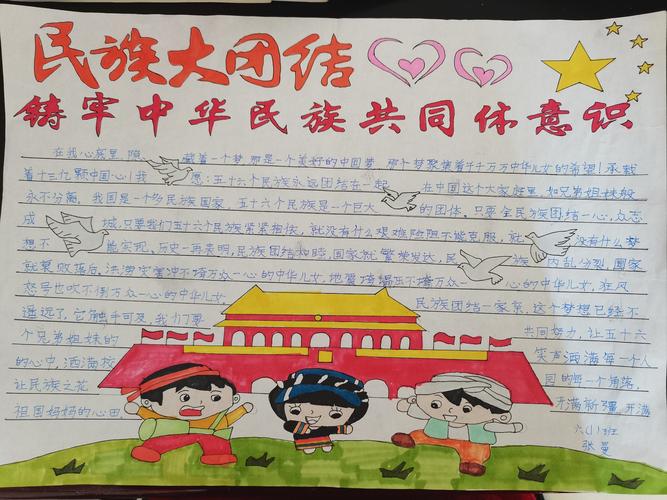 民族大团结
铸牢中华民族共同体意识
在我心底里，隐藏着一个梦，那是一个美好的中国梦，那个梦聚集着千千万万中华儿女的希望！承载
着十三亿颗中国心！我愿：五十六个民族永远团结在一起，在中国这个大家庭里，如兄弟姐妹般
永不分离。我国是一个多民族国家，五十六个民族是一个巨大的团体。只要全民族团结一心，众志
成城，只要我们五十六个民族紧紧相依，就没有什么艰难险阻不能克服，就没有什么梦
想不能实现。历史一再表明，民族团结和睦，国家就繁荣发达，民族内乱分裂，国家
就衰败落后。洪涝灾害冲不垮万众一心的中华儿女，地震摧塌压不垮万众一心的中华儿女，狂风
怒号也吹不倒万众一心的中华儿女。民族团结一家亲，这个梦想已经不
遥远了，它触手可及，我们要共同努力，让五十六
个兄弟姐妹的笑声洒满每一个人
的心中，洒满校园的每一个角落，
让民族之花开满新疆，开满
祖国妈妈的心田
六(1)班
张曼